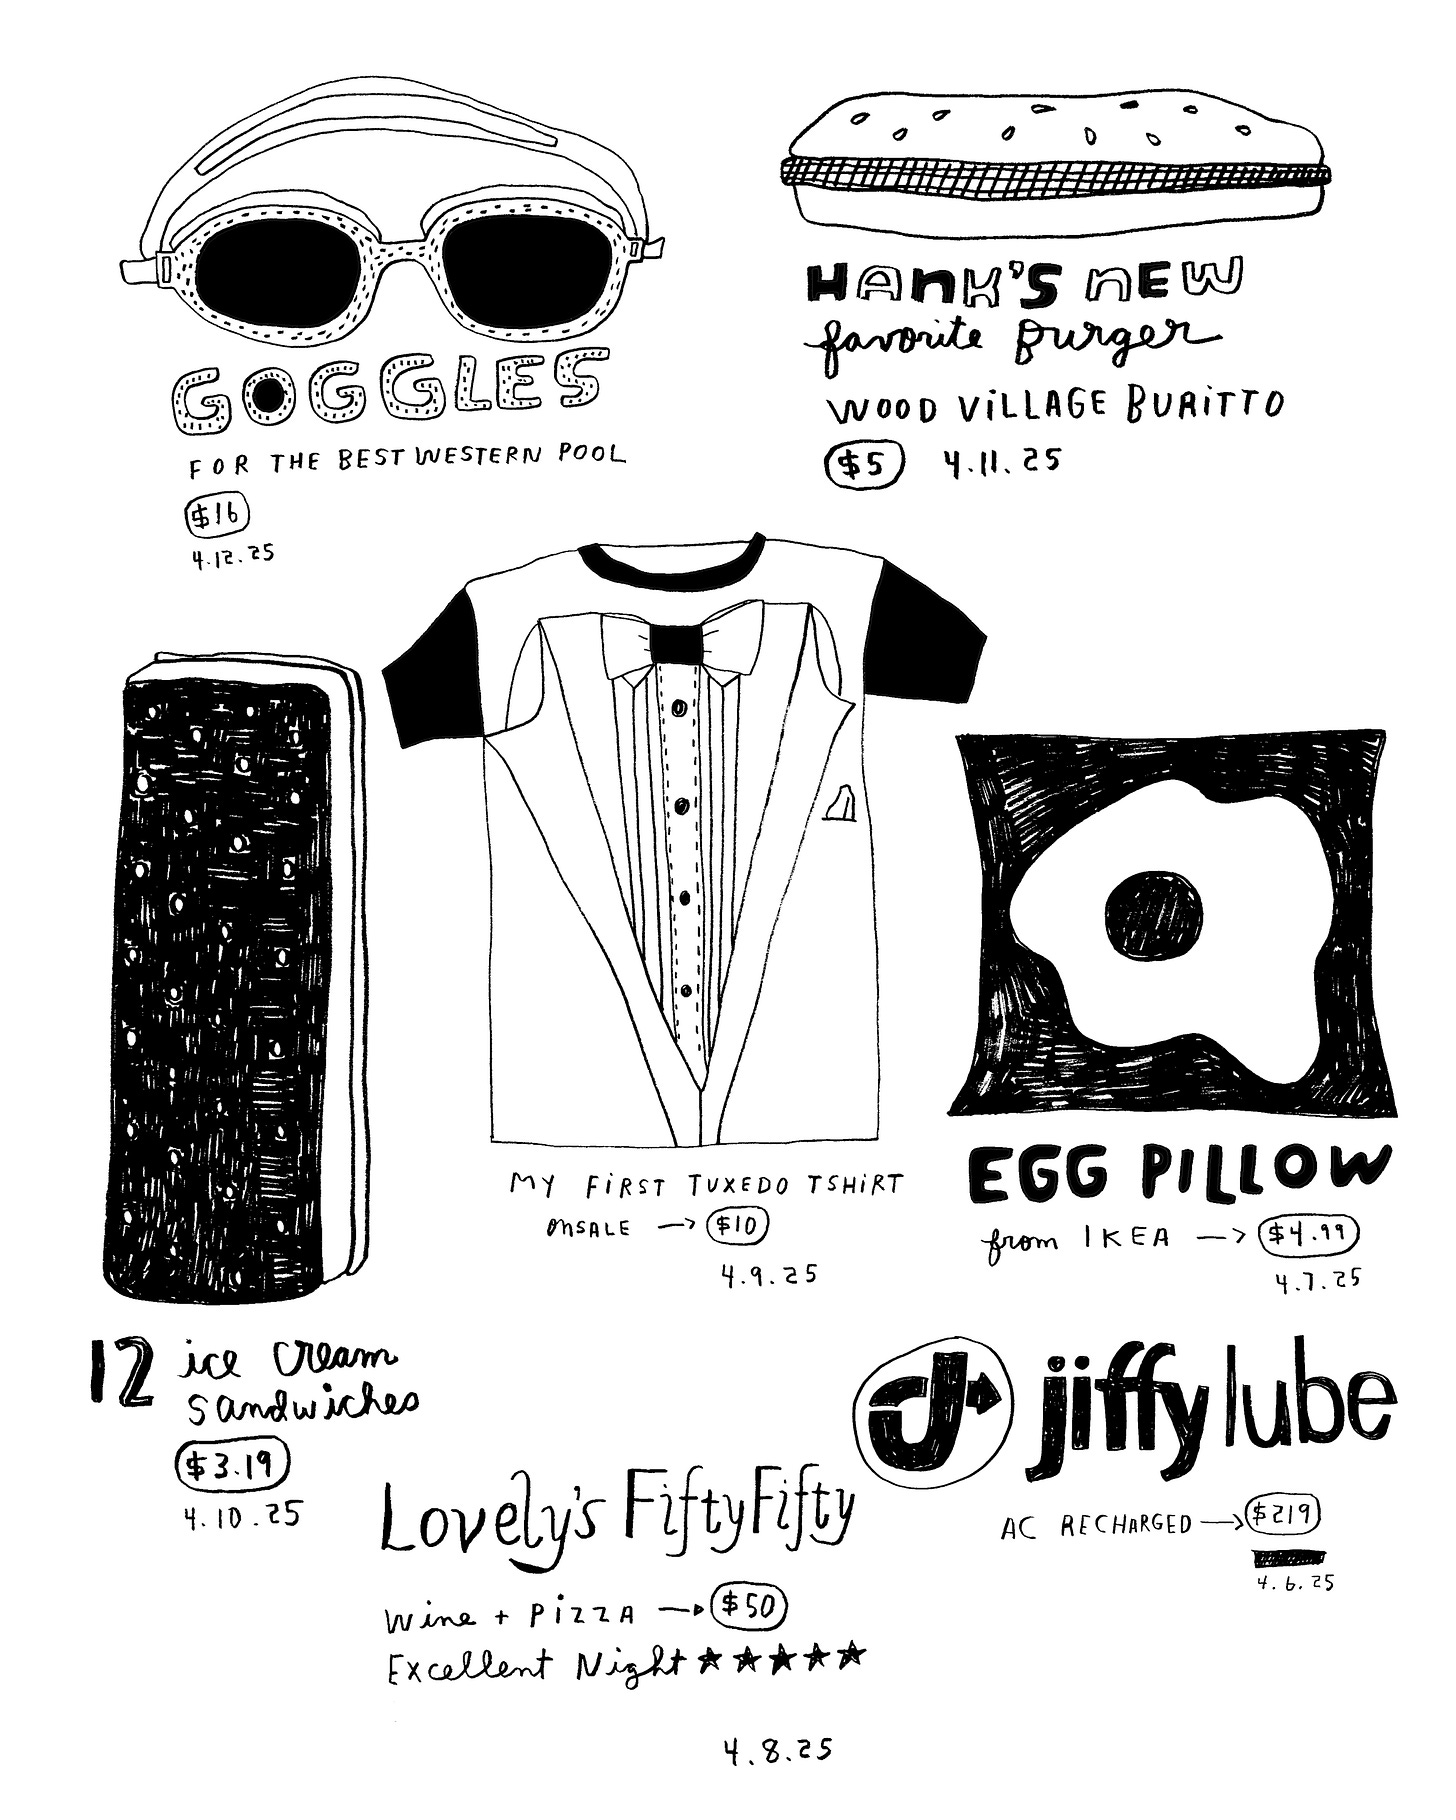 GOGGLES
FOR THE BEST WESTERN POOL
$16
4.12.25
HANK'S NEW
favorite burger
WOOD VILLAGE BURITTO
$5 4.11.25
MY FIRST TUXEDO TSHIRT
ONSALE → $10
4.9.25
EGG PILLOW
from IKEA → $4.99
4.7.25
12 ice cream
sandwiches
$3.19
4.10.25
jiffy lube
AC RECHARGED → $219
4.6.25
Lovely's FiftyFifty
Wine + PIZZA → $50
Excellent Night ★★★★★
4.8.25